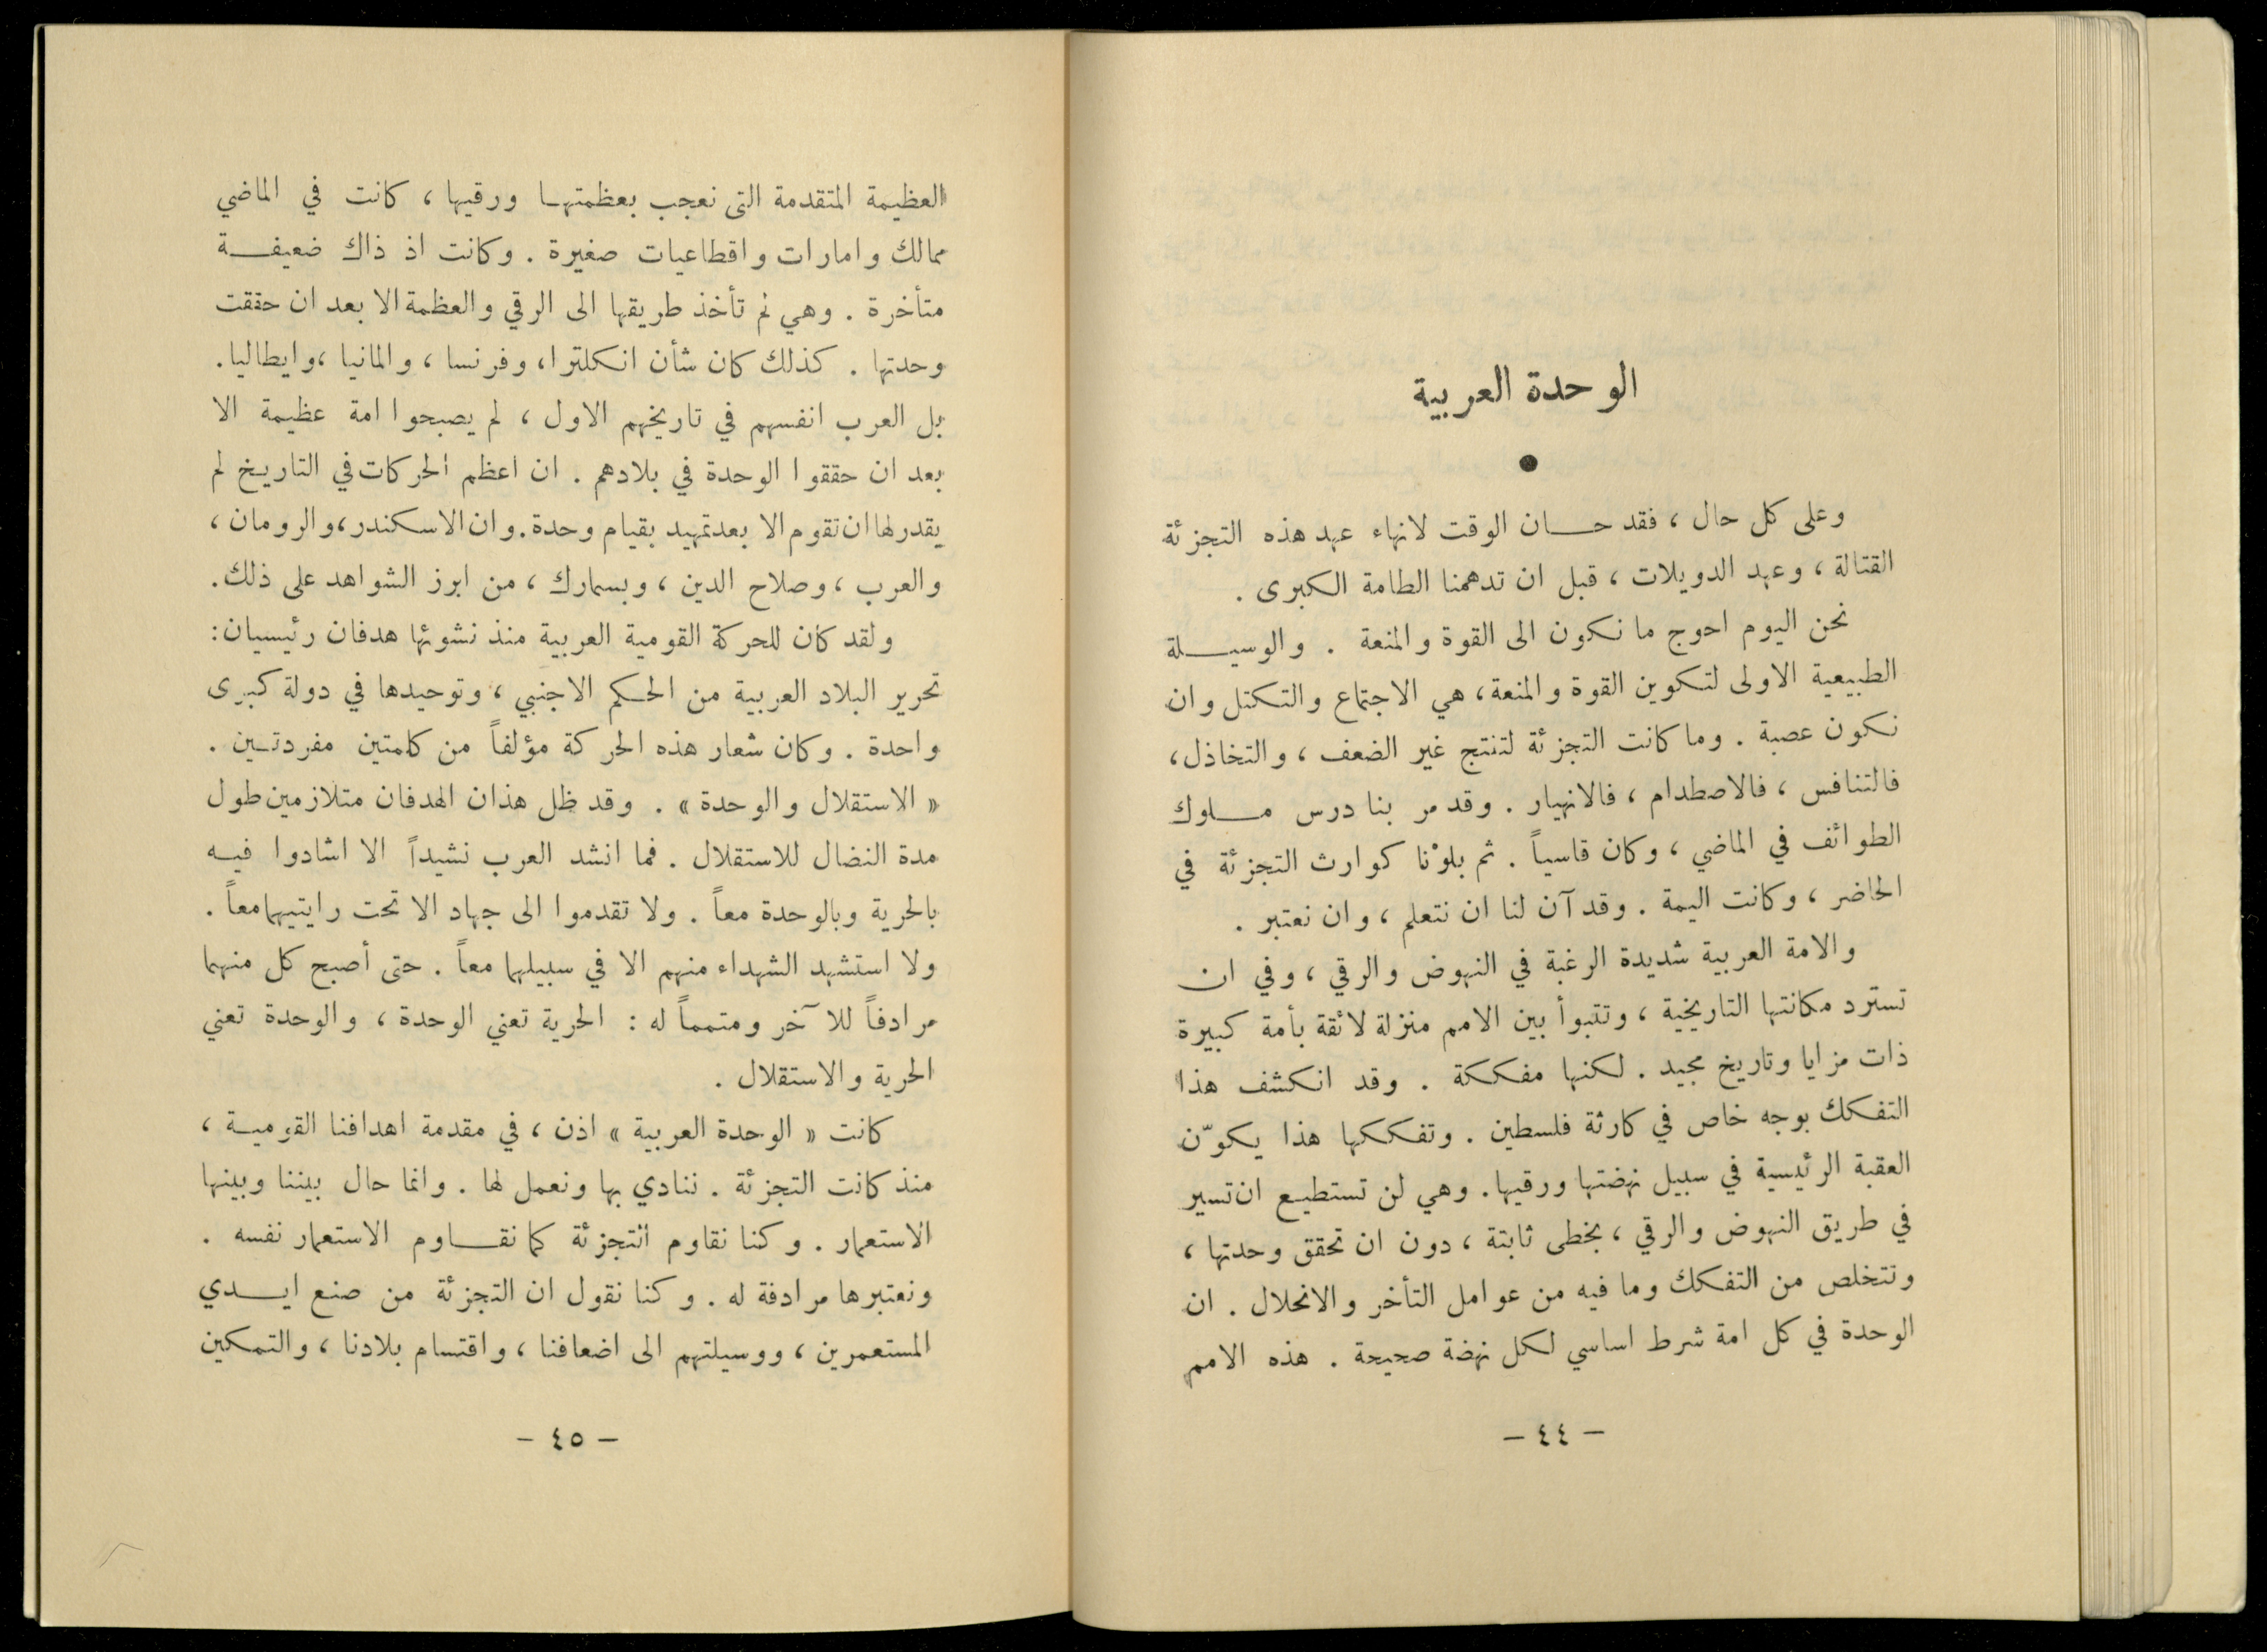 الوحدة العربية
وعلى كل حال ، فقد حان الوقت لانهاء عهد هذه التجزئة
القتالة ، وعهد الدويلات ، قبل ان تدهمنا الطامة الكبرى .
نحن اليوم احوج ما نكون الى القوة والمنعة . والوسيلة
الطبيعية الاولى لتكوين القوة والمنعة ، هي الاجتماع والتكتل وان
نكون عصبة . وما كانت التجزئة لتنتج غير الضعف ، والتخاذل ،
فالتنافس ، فالاصطدام ، فالانهيار . وقد مر بنا درس ملوك
الطوائف في الماضي ، وكان قاسياً . ثم بلوْنا كوارث التجزئة في
الحاضر ، وكانت اليمة . وقد آن لنا ان نتعلم ، وان نعتبر .
والامة العربية شديدة الرغبة في النهوض والرقي ، وفي ان
تسترد مكانتها التاريخية ، وتتبوأ بين الامم منزلة لائقة بأمة كبيرة
ذات مزايا وتاريخ مجيد . لكنها مفككة . وقد انكشف هذا
التفكك بوجه خاص في كارثة فلسطين . وتفككها هذا يكوّن
العقبة الرئيسية في سبيل نهضتها ورقيها . وهي لن تستطيع ان تسير
في طريق النهوض والرقي ، بخطى ثابتة ، دون ان تحقق وحدتها ،
وتتخلص من التفكك وما فيه من عوامل التأخر والانحلال . ان
الوحدة في كل امة شرط اساسي لكل نهضة صحيحة . هذه الامم
– ٤٤ –
العظيمة المتقدمة التي نعجب بعظمتها ورقيها ، كانت في الماضي
ممالك وامارات واقطاعيات صغيرة . وكانت اذ ذاك ضعيفة
متأخرة . وهي لم تأخذ طريقها الى الرقي والعظمة الا بعد ان حققت
وحدتها . كذلك كان شأن انكلترا ، وفرنسا ، والمانيا ، وايطاليا .
بل العرب انفسهم في تاريخهم الاول ، لم يصبحوا امة عظيمة الا
بعد ان حققوا الوحدة في بلادهم . ان اعظم الحركات في التاريخ لم
يقدر لها ان تقوم الا بعد تمهيد بقيام وحدة . وان الاسكندر ، والرومان ،
والعرب ، وصلاح الدين ، وبسمارك ، من ابرز الشواهد على ذلك .
ولقد كان للحركة القومية العربية منذ نشوئها هدفان رئيسيان :
تحرير البلاد العربية من الحكم الاجنبي ، وتوحيدها في دولة كبرى
واحدة . وكان شعار هذه الحركة مؤلفاً من كلمتين مفردتين .
« الاستقلال والوحدة » . وقد ظل هذان الهدفان متلازمين طول
مدة النضال للاستقلال . فما انشد العرب نشيداً الا اشادوا فيه
بالحرية وبالوحدة معاً . ولا تقدموا الى جهاد الا تحت رايتيهما معاً .
ولا استشهد الشهداء منهم الا في سبيلهما معاً . حتى أصبح كل منهما
مرادفاً للآخر ومتمماً له : الحرية تعني الوحدة ، والوحدة تعني
الحرية والاستقلال .
كانت « الوحدة العربية » اذن ، في مقدمة اهدافنا القومية ،
منذ كانت التجزئة . ننادي بها ونعمل لها . وانما حال بيننا وبينها
الاستعمار . وكنا نقاوم التجزئة كما نقاوم الاستعمار نفسه .
ونعتبرها مرادفة له . وكنا نقول ان التجزئة من صنع ايدي
المستعمرين ، ووسيلتهم الى اضعافنا ، واقتسام بلادنا ، والتمكين
– ٤٥ –